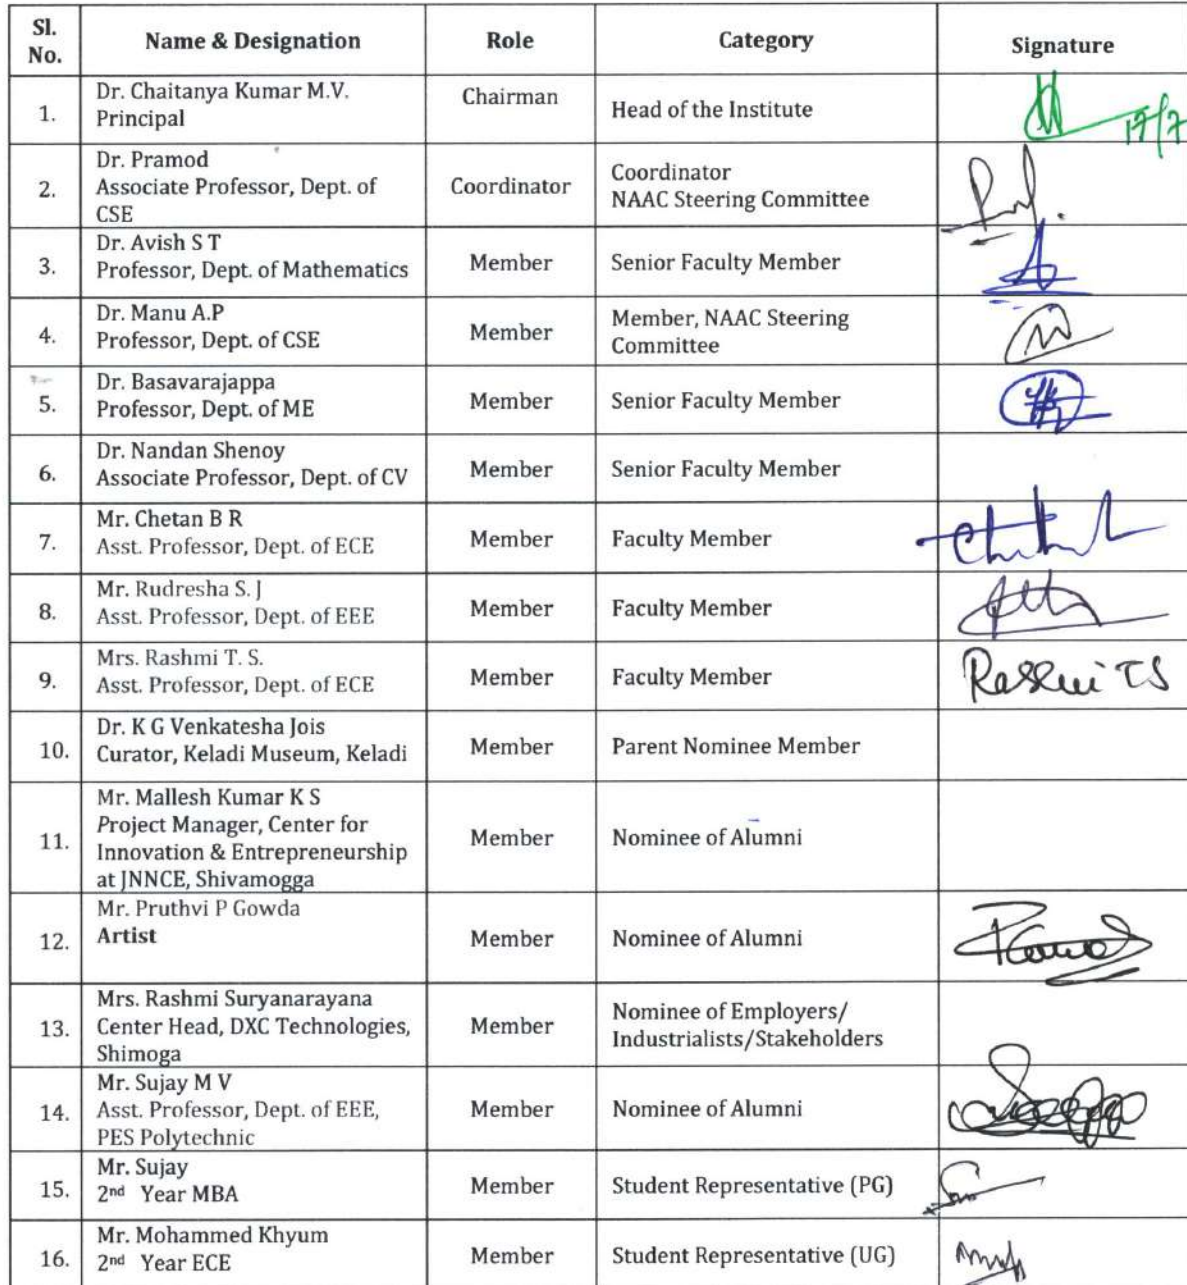 Sl. No. Name & Designation Role Category Signature
1. Dr. Chaitanya Kumar M.V. Principal Chairman Head of the Institute 17/7
2. Dr. Pramod Associate Professor, Dept. of CSE Coordinator Coordinator NAAC Steering Committee
3. Dr. Avish S T Professor, Dept. of Mathematics Member Senior Faculty Member
4. Dr. Manu A.P Professor, Dept. of CSE Member Member, NAAC Steering Committee
5. Dr. Basavarajappa Professor, Dept. of ME Member Senior Faculty Member
6. Dr. Nandan Shenoy Associate Professor, Dept. of CV Member Senior Faculty Member
7. Mr. Chetan B R Asst. Professor, Dept. of ECE Member Faculty Member
8. Mr. Rudresha S. J Asst. Professor, Dept. of EEE Member Faculty Member
9. Mrs. Rashmi T. S. Asst. Professor, Dept. of ECE Member Faculty Member Rashmi TS
10. Dr. K G Venkatesha Jois Curator, Keladi Museum, Keladi Member Parent Nominee Member
11. Mr. Mallesh Kumar K S Project Manager, Center for Innovation & Entrepreneurship at JNNCE, Shivamogga Member Nominee of Alumni
12. Mr. Pruthvi P Gowda Artist Member Nominee of Alumni
13. Mrs. Rashmi Suryanarayana Center Head, DXC Technologies, Shimoga Member Nominee of Employers/ Industrialists/Stakeholders
14. Mr. Sujay M V Asst. Professor, Dept. of EEE, PES Polytechnic Member Nominee of Alumni
15. Mr. Sujay 2nd Year MBA Member Student Representative (PG)
16. Mr. Mohammed Khyum 2nd Year ECE Member Student Representative (UG)